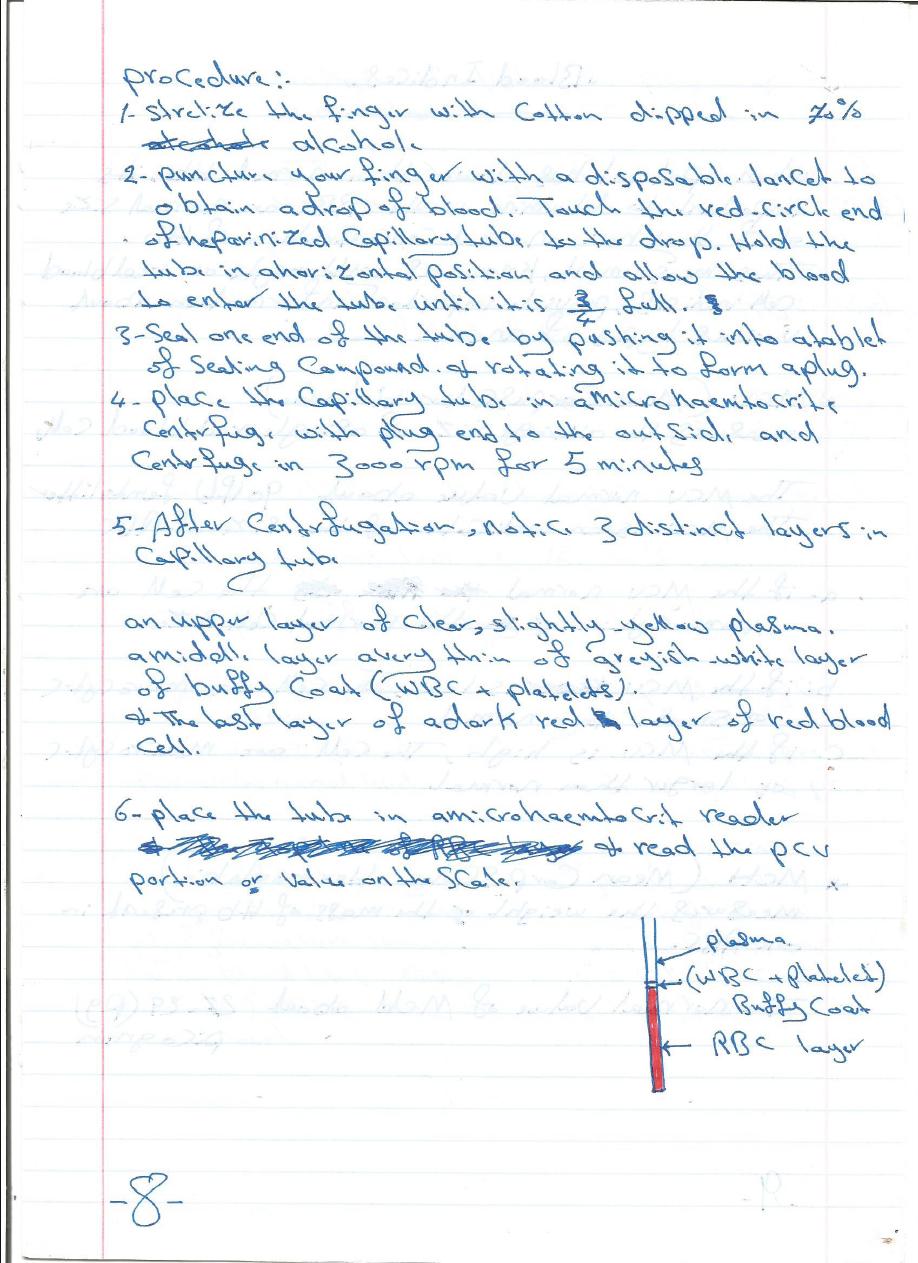 procedure:-
1- stretize the finger with Cotton dipped in 70%
alcohole
2- puncture your finger with a disposable lancet to
obtain a drop of blood. Touch the red-circle end
of heparinized Capillary tube to the drop. Hold the
tube in a horizontal position and allow the blood
to enter the tube until it is 3/4 full.
3- Seal one end of the tube by pushing it into a tablet
of Sealing Compound & rotating it to form a plug.
4- place the Capillary tube in a microhaemtocrite
Centrfuge with plug end to the outside and
Centrfuge in 3000 rpm for 5 minutes
5- After Centrfugation, notice 3 distinct layers in
Capillary tube
an upper layer of Clear, slightly-yellow plasma.
a middle layer a very thin of greyish-white layer
of buffy Coat (WBC + platelets)
& The last layer of a dark red layer of red blood
Cell.
6- place the tube in a microhaemtocrit reader
& read the pcv
portion or value on the Scale.
plasma
(WBC + platelet)
Buffy Coat
RBC layer
-8-